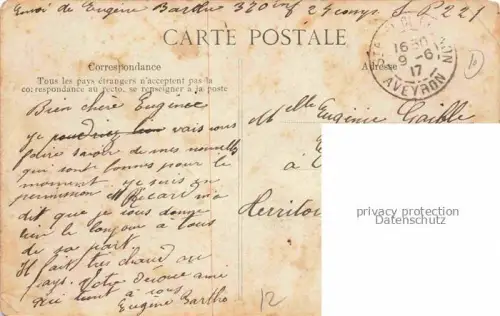 Envoi de Eugène Barthe 320 inf 24 comp S P 221
CARTE POSTALE
Correspondance
Tous les pays étrangers n'acceptent pas la
correspondance au recto, se renseigner à la poste
Adresse
16
9-6
17
AVEYRON
Bien chère Eugénée
je vais vous
faire savoir de mes nouvelles
qui sont bonnes pour le
moment. je suis en
permission M Ricard m'a
dit que je vous donne
bien le bonjour à tous
de sa part
Il fait très chaud au
pays. Votre ami
qui tient à vous
Eugène Barthe
Melle Eugénie
à
privacy protection
Datenschutz
12